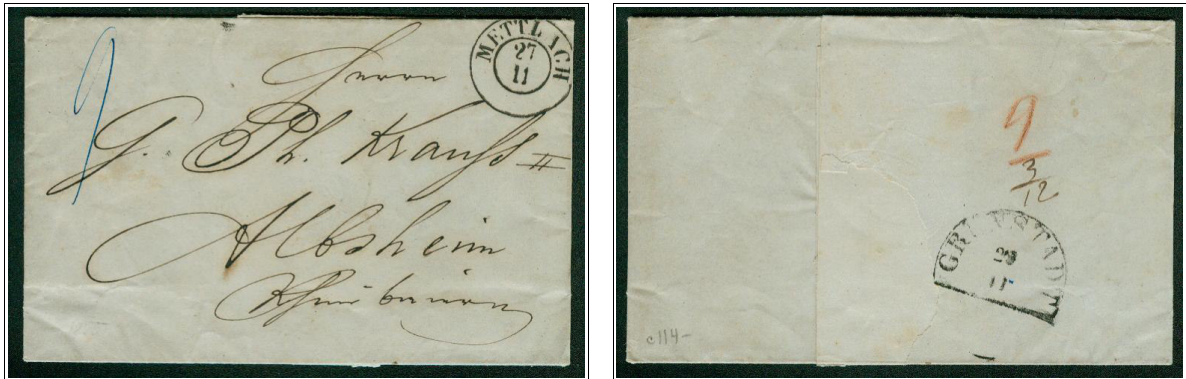 METTLACH
27
11
9
Herrn
G. Ph. Krauss II
Albsheim
Rheinbaiern
9
3
12
GRÜNSTADT
28
11
c114-